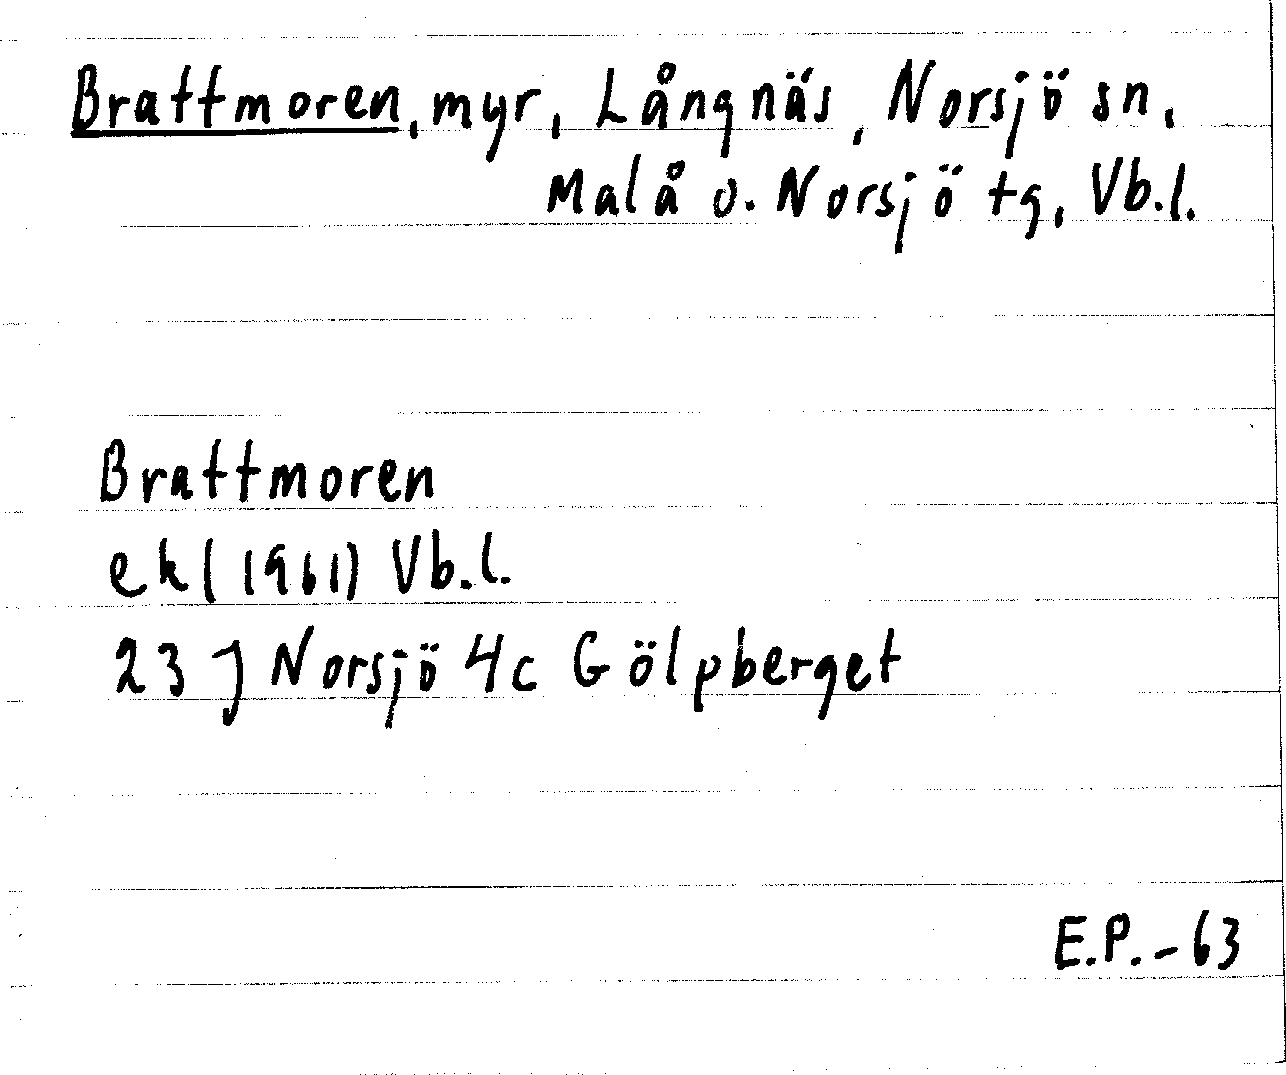 Brattmoren, myr, Långnäs, Norsjö sn,
Malå o. Norsjö tg, Vb.l.
Brattmoren
ek (1961) Vb.l.
23 J Norsjö 4c Gölpberget
E.P.-63